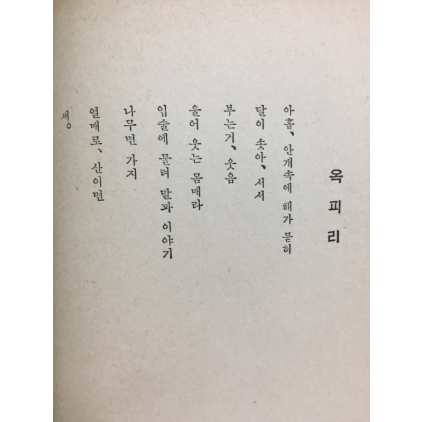 옥피리
아홉, 안개속에 해가 묻혀
달이 솟아, 서서
부는거, 웃음
울어 웃는 몸매라
입술에 물려 말과 이야기
나무면 가지
열매로, 산이면
새。